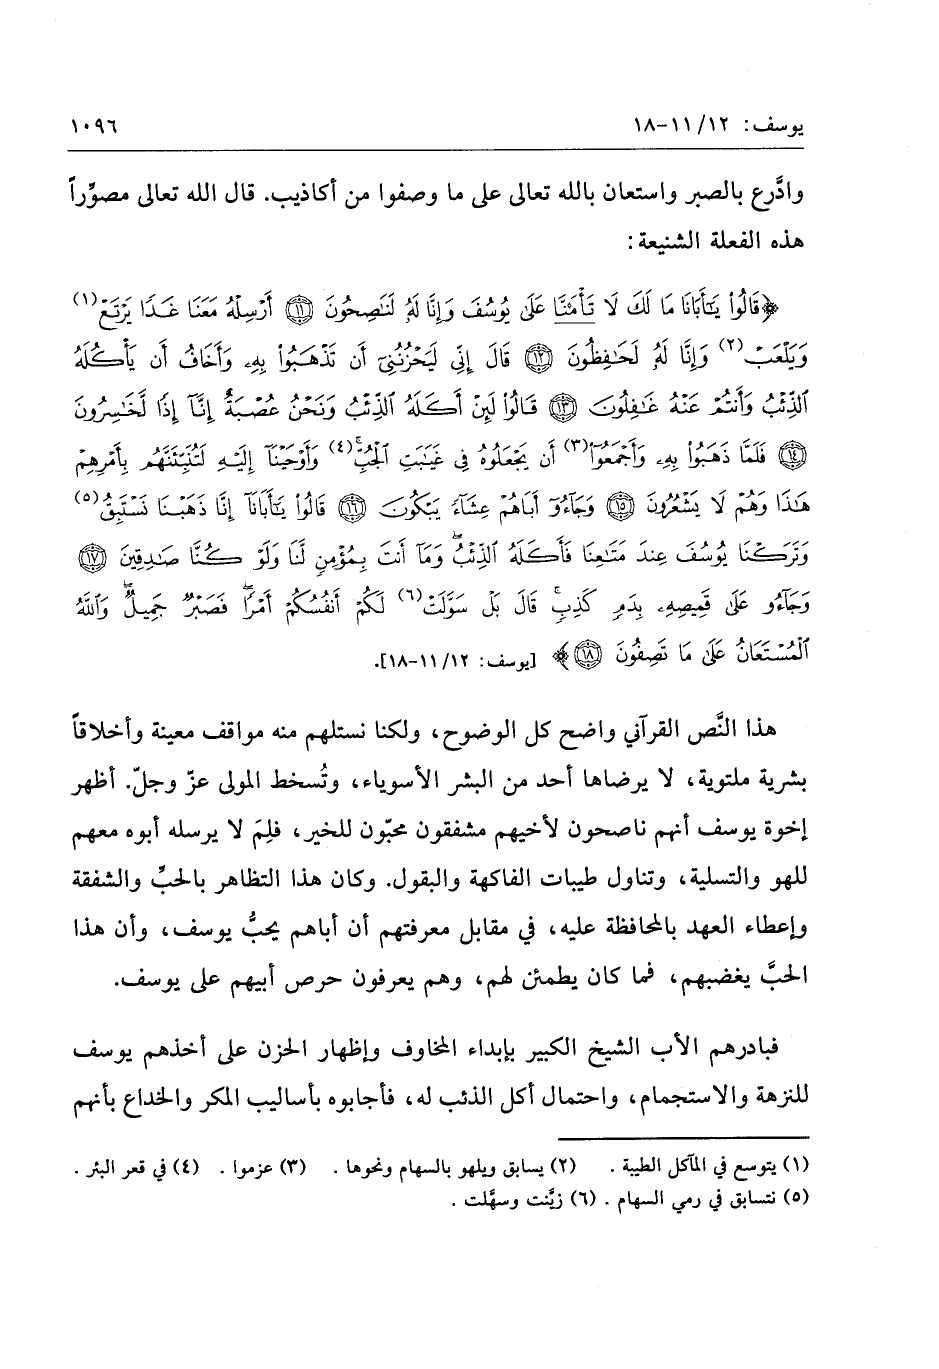 يوسف: ١٢/ ١١-١٨ ١٠٩٦
وادَّرع بالصبر واستعان بالله تعالى على ما وصفوا من أكاذيب. قال الله تعالى مصوِّراً
هذه الفعلة الشنيعة:
﴿قَالُواْ يَٰٓأَبَانَا مَا لَكَ لَا تَأۡمَ۬نَّا عَلَىٰ يُوسُفَ وَإِنَّا لَهُۥ لَنَٰصِحُونَ ١١ أَرۡسِلۡهُ مَعَنَا غَدٗا يَرۡتَعۡ(١)
وَيَلۡعَبۡ(٢) وَإِنَّا لَهُۥ لَحَٰفِظُونَ ١٢ قَالَ إِنِّي لَيَحۡزُنُنِيٓ أَن تَذۡهَبُواْ بِهِۦ وَأَخَافُ أَن يَأۡكُلَهُ
ٱلذِّئۡبُ وَأَنتُمۡ عَنۡهُ غَٰفِلُونَ ١٣ قَالُواْ لَئِنۡ أَكَلَهُ ٱلذِّئۡبُ وَنَحۡنُ عُصۡبَةٌ إِنَّآ إِذٗا لَّخَٰسِرُونَ
١٤ فَلَمَّا ذَهَبُواْ بِهِۦ وَأَجۡمَعُوٓاْ(٣) أَن يَجۡعَلُوهُ فِي غَيَٰبَتِ ٱلۡجُبِّۚ(٤) وَأَوۡحَيۡنَآ إِلَيۡهِ لَتُنَبِّئَنَّهُم بِأَمۡرِهِمۡ
هَٰذَا وَهُمۡ لَا يَشۡعُرُونَ ١٥ وَجَآءُوٓ أَبَاهُمۡ عِشَآءٗ يَبۡكُونَ ١٦ قَالُواْ يَٰٓأَبَانَآ إِنَّا ذَهَبۡنَا نَسۡتَبِقُ(٥)
وَتَرَكۡنَا يُوسُفَ عِندَ مَتَٰعِنَا فَأَكَلَهُ ٱلذِّئۡبُۖ وَمَآ أَنتَ بِمُؤۡمِنٖ لَّنَا وَلَوۡ كُنَّا صَٰدِقِينَ ١٧
وَجَآءُو عَلَىٰ قَمِيصِهِۦ بِدَمٖ كَذِبٖۚ قَالَ بَلۡ سَوَّلَتۡ(٦) لَكُمۡ أَنفُسُكُمۡ أَمۡرٗاۖ فَصَبۡرٞ جَمِيلٞۖ وَٱللَّهُ
ٱلۡمُسۡتَعَانُ عَلَىٰ مَا تَصِفُونَ ١٨﴾ [يوسف: ١٢/ ١١-١٨].
هذا النَّص القرآني واضح كل الوضوح، ولكنا نستلهم منه مواقف معينة وأخلاقاً
بشرية ملتوية، لا يرضاها أحد من البشر الأسوياء، وتُسخط المولى عزّ وجلّ. أظهر
إخوة يوسف أنهم ناصحون لأخيهم مشفقون محبّون للخير، فلِمَ لا يرسله أبوه معهم
للهو والتسلية، وتناول طيبات الفاكهة والبقول. وكان هذا التظاهر بالحبِّ والشفقة
وإعطاء العهد بالمحافظة عليه، في مقابل معرفتهم أن أباهم يحبُّ يوسف، وأن هذا
الحبَّ يغضبهم، فما كان يطمئن لهم، وهم يعرفون حرص أبيهم على يوسف.
فبادرهم الأب الشيخ الكبير بإبداء المخاوف وإظهار الحزن على أخذهم يوسف
للنزهة والاستجمام، واحتمال أكل الذئب له، فأجابوه بأساليب المكر والخداع بأنهم
(١) يتوسع في المآكل الطيبة . (٢) يسابق ويلهو بالسهام ونحوها . (٣) عزموا . (٤) في قعر البئر .
(٥) نتسابق في رمي السهام . (٦) زيَّنت وسهَّلت .